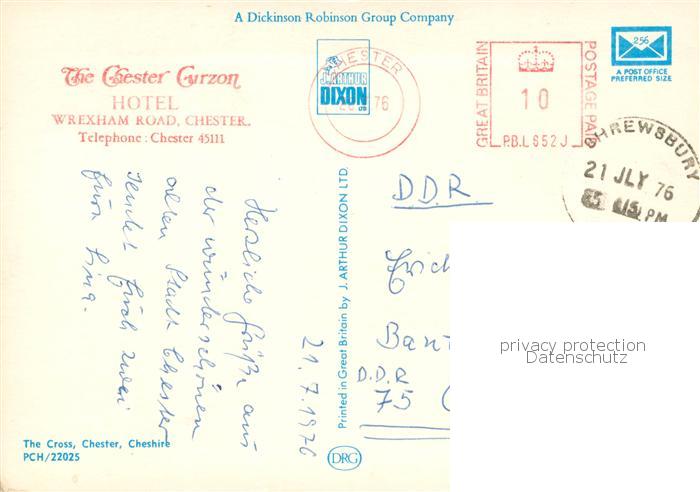 A Dickinson Robinson Group Company
The Chester Curzon
HOTEL
WREXHAM ROAD, CHESTER.
Telephone : Chester 45111
CHESTER
J. ARTHUR
DIXON
LTD
76
GREAT BRITAIN
10
P.B.L 652J
POSTAGE PAID
256
A POST OFFICE
PREFERRED SIZE
SHREWSBURY
21 JLY 76
PM
Herzliche Grüße aus
der wunderschönen
alten Stadt Chester
sendet Euch zwei
Eure
21.7.1976
Printed in Great Britain by J. ARTHUR DIXON LTD.
DDR
Erich
D.D.R
75
privacy protection
Datenschutz
The Cross, Chester, Cheshire
PCH/22025
DRG